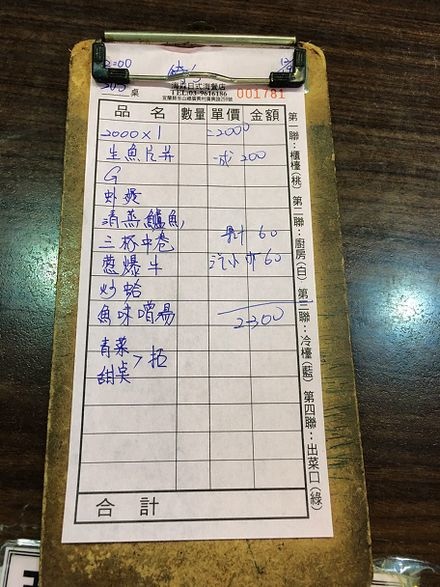 2:00
205 桌
海森日式海餐店
TEL:03-9616186
001781
品名 數量 單價 金額
2000×1 =2000
生魚片 成200
G
清蒸鱸魚
三杯中卷 60
蔥爆牛 汽水 60
炒蛤
魚味噌湯 2300
青菜
甜桌
合計
第一聯:櫃檯(桃) 第二聯:廚房(白) 第三聯:冷檯(藍) 第四聯:出菜口(綠)